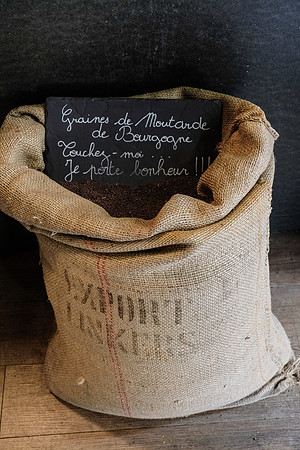 Graines de Moutarde
de Bourgogne
Touchez-moi...
Je porte bonheur !!!
EXPORT